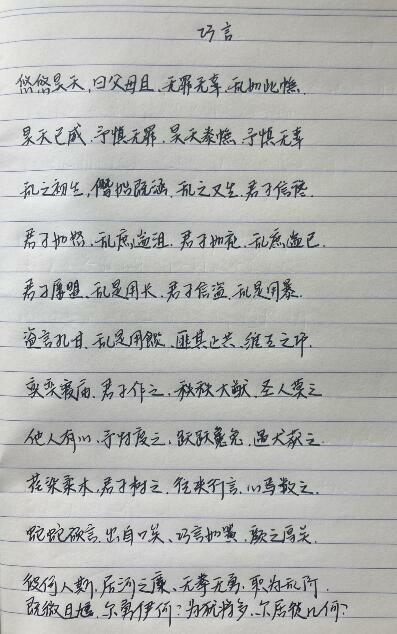 巧言
悠悠昊天，曰父母且，无罪无辜，乱如此憮．
昊天已威，予慎无罪，昊天泰憮，予慎无辜
乱之初生，僭始既涵，乱之又生，君子信谗．
君子如怒，乱庶遄沮，君子如祉，乱庶遄已．
君子屡盟，乱是用长，君子信盗，乱是用暴．
盗言孔甘，乱是用餤，匪其止共，维王之邛．
奕奕寝庙，君子作之，秩秩大猷，圣人莫之
他人有心，予忖度之，跃跃毚兔，遇犬获之．
荏染柔木，君子树之，往来行言，心焉数之．
蛇蛇硕言，出自口矣，巧言如簧，颜之厚矣．
彼何人斯，居河之麋，无拳无勇，职为乱阶．
既微且尰，尔勇伊何？为犹将多，尔居徒几何？